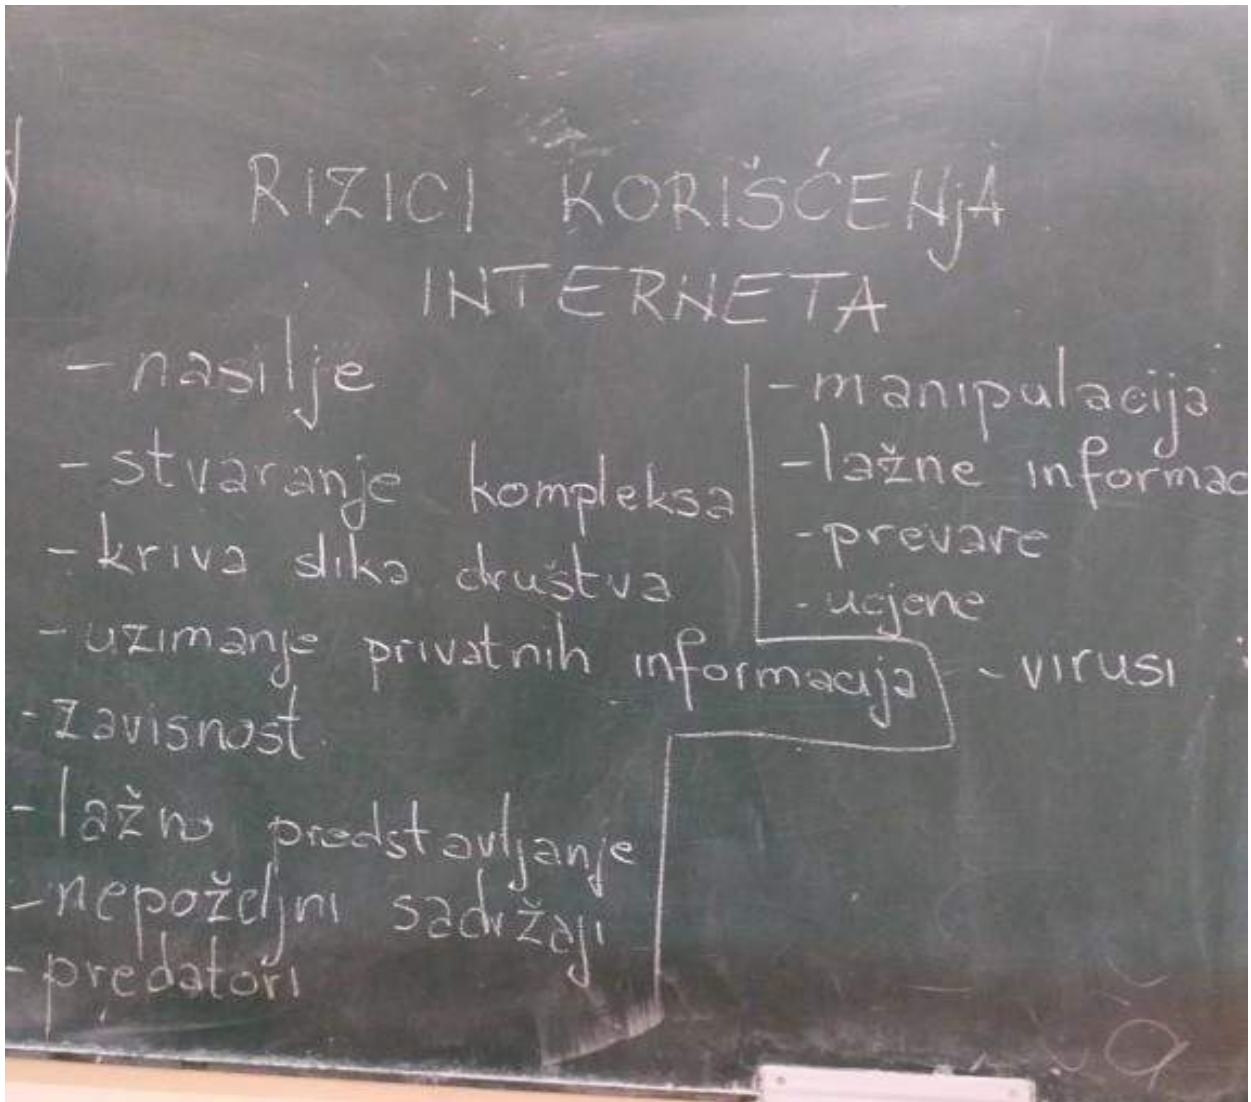 RIZICI KORIŠĆENjA
INTERNETA
- nasilje
- stvaranje kompleksa
- kriva slika društva
- uzimanje privatnih informacija
- zavisnost
- lažno predstavljanje
- nepoželjni sadržaji
- predatori
- manipulacija
- lažne informac
- prevare
- ucjene
- virusi